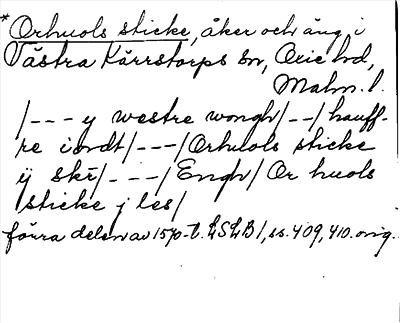 *Orhuols sticke, åker och äng i
Västra Kärrstorps sn, Oxie hd,
Malm. l.
/--- y westre wongh/--/hauff-
re iordt/---/Orhuols sticke
ij skr/---/Engh/Or huols
sticke j les/
förra delen av 1570-t. LSLB1, ss. 409, 410. orig.